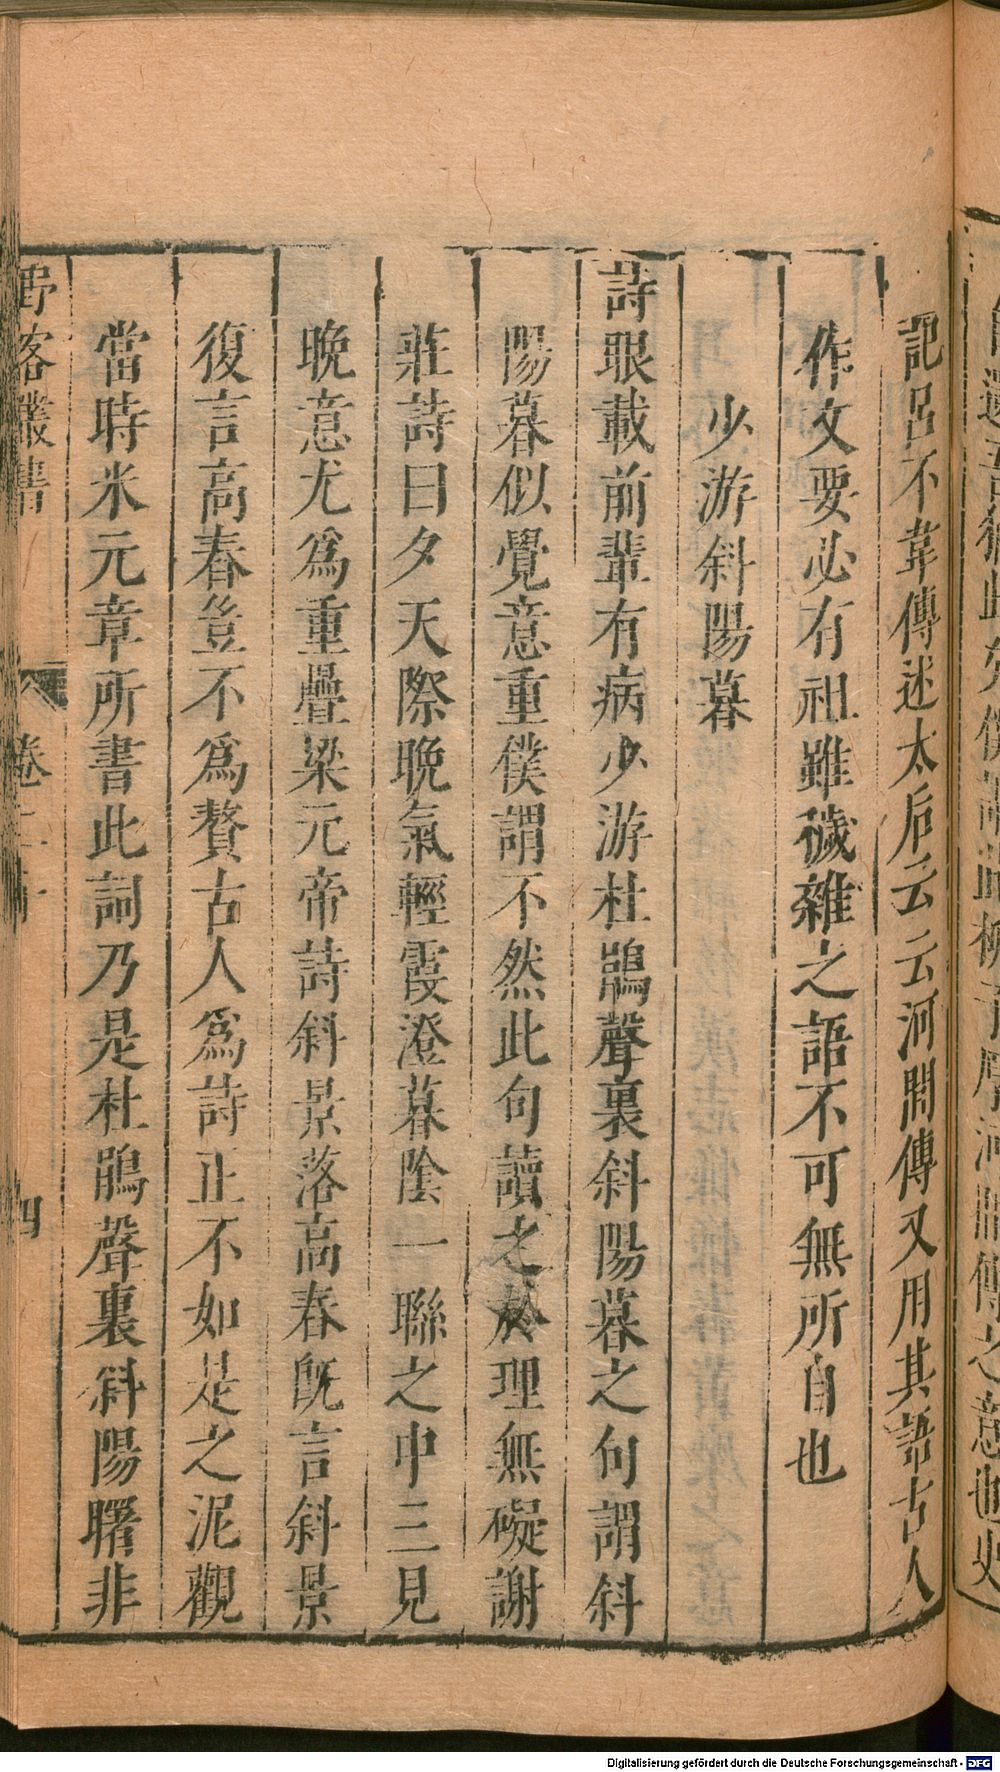 記呂不韋傳述太后云云河間傳又用其語古人
作文要必有祖雖穢雜之語不可無所自也
少游斜陽暮
詩眼載前輩有病少游杜鵑聲裏斜陽暮之句謂斜
陽暮似覺意重僕謂不然此句讀之於理無礙謝
莊詩曰夕天際晚氣輕霞澄暮陰一聯之中三見
晚意尤爲重疊梁元帝詩斜景落高舂旣言斜景
復言高舂豈不爲贅古人爲詩正不如是之泥觀
當時米元章所書此詞乃是杜鵑聲裏斜陽曙非
野客叢書 卷二十 四
Digitalisierung gefördert durch die Deutsche Forschungsgemeinschaft - DFG